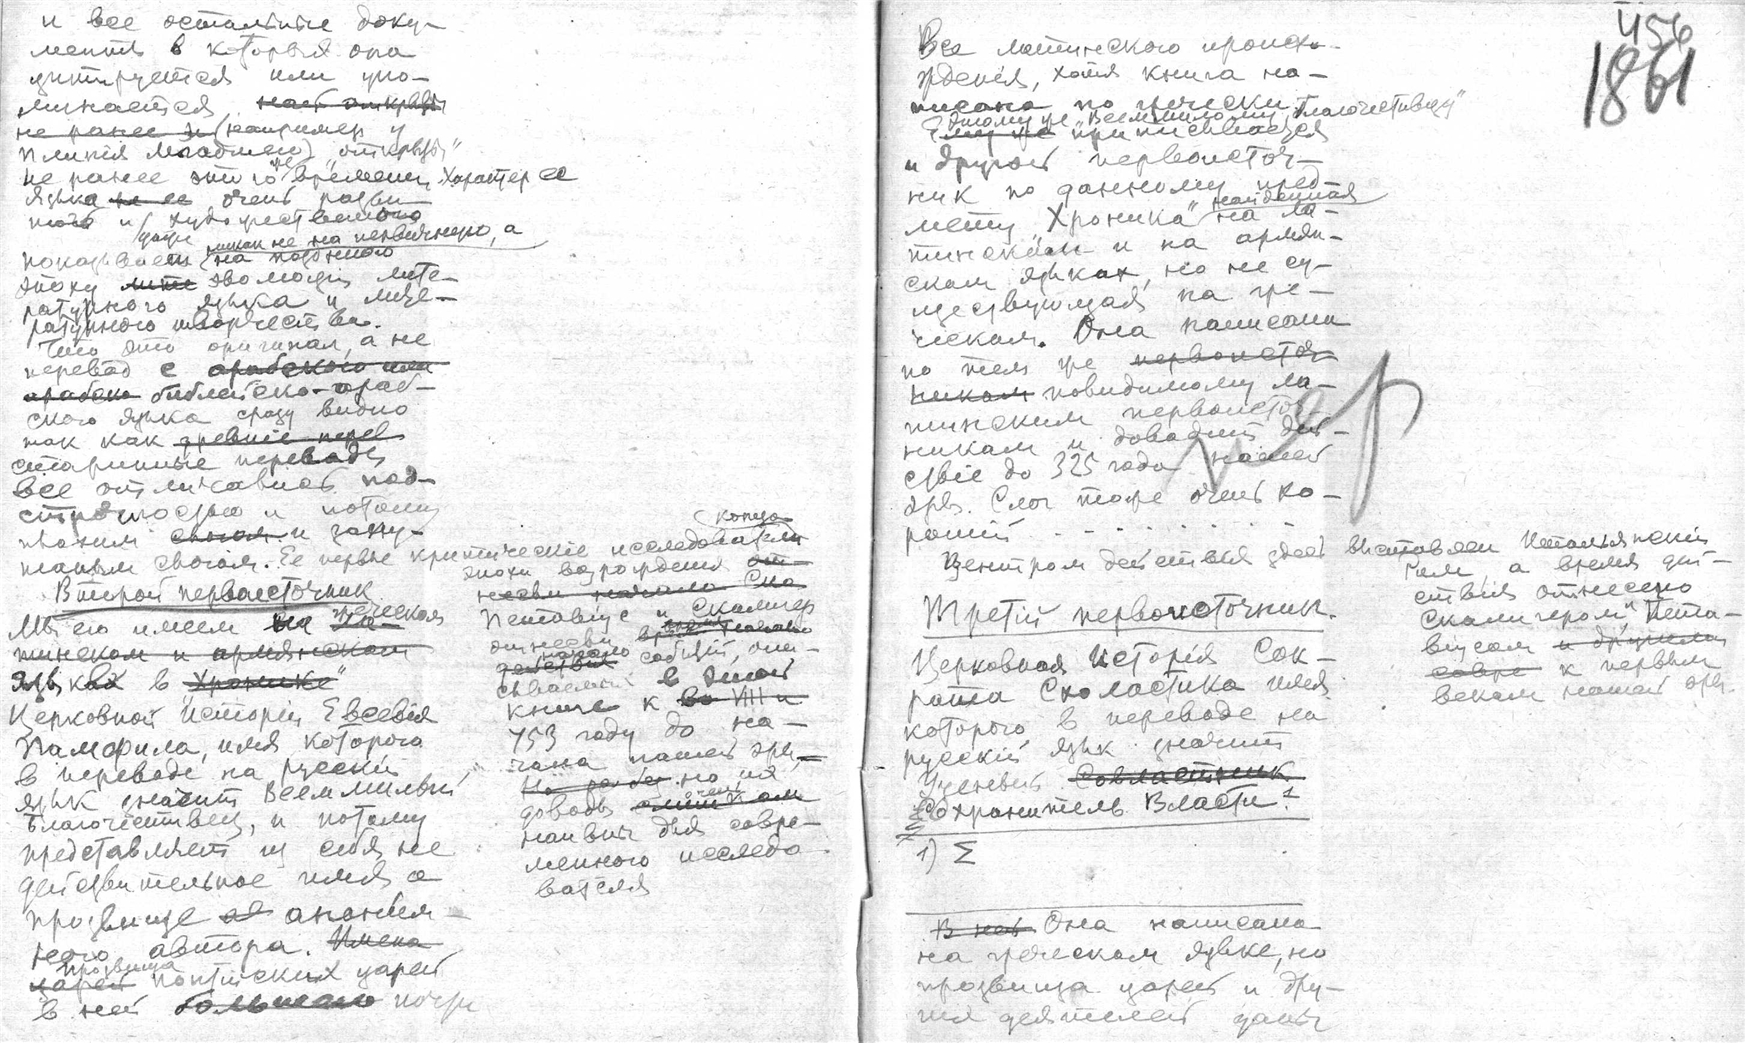 и все остальные доку-
менты в которыя она
цитируется или упо-
минается, наст открыты
не ранее и (например у
Плинія Младшего) "открыты"
не ранее этого же времени. Характер ее
языка не ее очень разви-
той и художественного
даже никак не на первичную, а
показывает на позднюю
эпоху эволюціи лите-
ратурного языка и лите-
ратурного творчества.
Что это оригинал, а не
перевод с арабского или
арабско библейско-араб-
ского языка сразу видно
так как древніе перев
старинные переводы
все отличаются под-
строчностью и потому
плохим слогом и запу-
танным слогом. Ее первые критическіе исследователи
конца
эпохи возрождения от-
несли начало Ска
Петавіус и Скалигер
отнесли время начало
действия начало событий, опи-
сываемых в этой
книге к во VIII и
753 году до на-
чала нашей эры,
На ра без но их
доводы очень
наивны для совре-
менного исследо-
вателя
Второй первоисточник
Мы его имеем на греческом ла-
тинском и армянском
языках в "Хронике"
Церковной Исторіи Евсевія
Памфила, имя которого
в переводе на русскій
язык значит Всемилый
Благочестивец, и потому
представляет из себя не
действительное имя а
прозвище ано аноним-
ного автора. Имена
царей прозвища понтійских царей
в ней большею почти
456
1861
Все латинского происхо-
жденія, хотя книга на-
писана по гречески.
Этому же "Всемилому Благочестивцу"
Ему же приписывается
и другой первоисточ-
ник по данному пред
мету "Хроника" найденная на ла-
тинском и на армян-
ском языках, но не су-
ществующая на гре-
ческом. Она написана
по тем же первоисточ-
никам повидимому ла-
тинским первоисточ-
никам и доводит дей-
ствіе до 325 года нашей
эры. Слог тоже очень хо-
роший . . . . . . . .
Центром действия здесь выставлен Итальянскій
Рим а время дей-
ствия отнесено
Скалигером, Пета-
віусом и другими
совре к первым
векам нашей эры.
Третій первоисточник.
Церковная Исторія Сок-
рата Схоластика имя
которого в переводе на
русскій язык значит
Ученый Совластник
Сохранитель Власти.1
1) Σ
В ней Она написана
на греческом языке, но
прозвища царей и дру-
гих деятелей даны